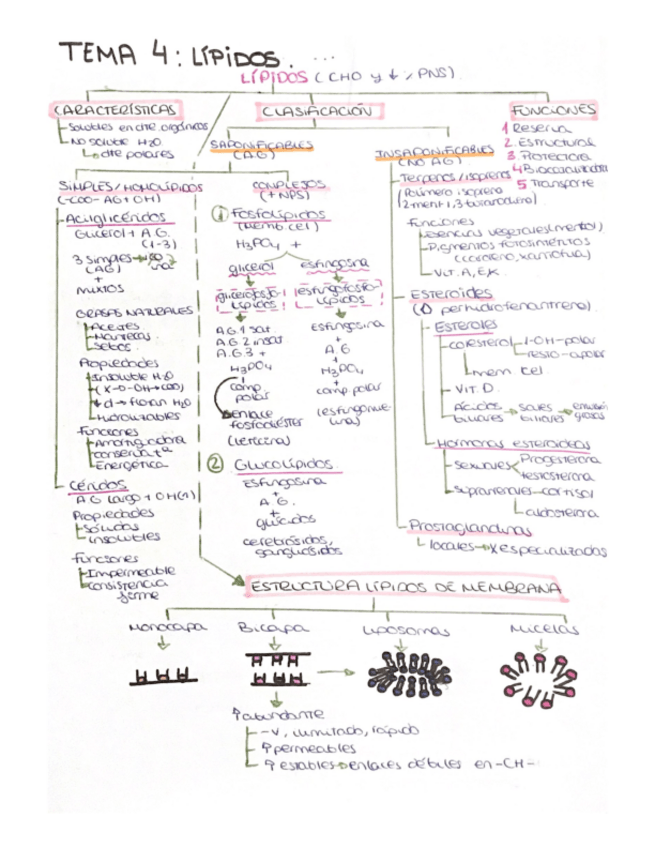 TEMA 4: LÍPIDOS. ...
LÍPIDOS (CHO y ↓, PNS)
CARACTERÍSTICAS
Solubles en dtes. orgánicos
No soluble H₂O
dte polares
CLASIFICACIÓN
SAPONIFICABLES
(AG)
SIMPLES/HOMOLÍPIDOS
(-COO- AG + OH)
Acilglicéridos
Glicerol + A.G.
(1-3)
3 simples
(AG)
+
mixtos
GRASAS NATURALES
Aceites
Mantecas
Sebos
Propiedades
Insoluble H₂O
↓d → flotan H₂O
Hidrolizables
Funciones
Amortiguadora
conserva tª
Energética
Céridos
AG largo + OH(1)
Propiedades
Sólidas
insolubles
Funciones
Impermeable
Consistencia
firme
COMPLEJOS
(+NPS)
1 Fosfolípidos
(memb cel)
H₃PO₄ +
glicerol
esfingosina
glicerofosfo-
lípidos
esfingofosfo-
lípidos
A.G. 1 sat.
A.G. 2 insat
A.G. 3 +
H₃PO₄
+
comp.
polar
enlace
fosfodiéster
(lecitina)
esfingosina
+
A.G
+
H₃PO₄
+
comp polar
(esfingomie-
lina)
2 Glucolípidos
Esfingosina
+
A.G.
+
glúcidos
cerebrósidos,
gangliósidos
INSAPONIFICABLES
(NO AG)
Terpenos / isoprenos
(Polímero isopreno
2-metil-1,3-butanodieno)
Funciones
Esencias vegetales (mentol)
Pigmentos fotosintéticos
(caroteno, xantofila)
Vit. A, E, K
ESTEROIDES
perhidrofenantreno)
Esteroles
colesterol
-OH-polar
resto-apolar
mem cel
VIT D.
Ácidos
biliares
sales
biliares
emulsión
grasas
Hormonas esteroideas
Sexuales
Progesterona
testosterona
Suprarrenales
cortisol
aldosterona
Prostaglandinas
locales → X especializados
FUNCIONES
1 Reserva
2. Estructural
3 Protectora
4 Biocatalizadora
5 Transporte
ESTRUCTURA LÍPIDOS DE MEMBRANA
Monocapa
Bicapa
Liposomas
Micelas
↑ abundante
-v, ilimitado, rápido
↑ permeables
↑ estables → enlaces débiles en -CH-